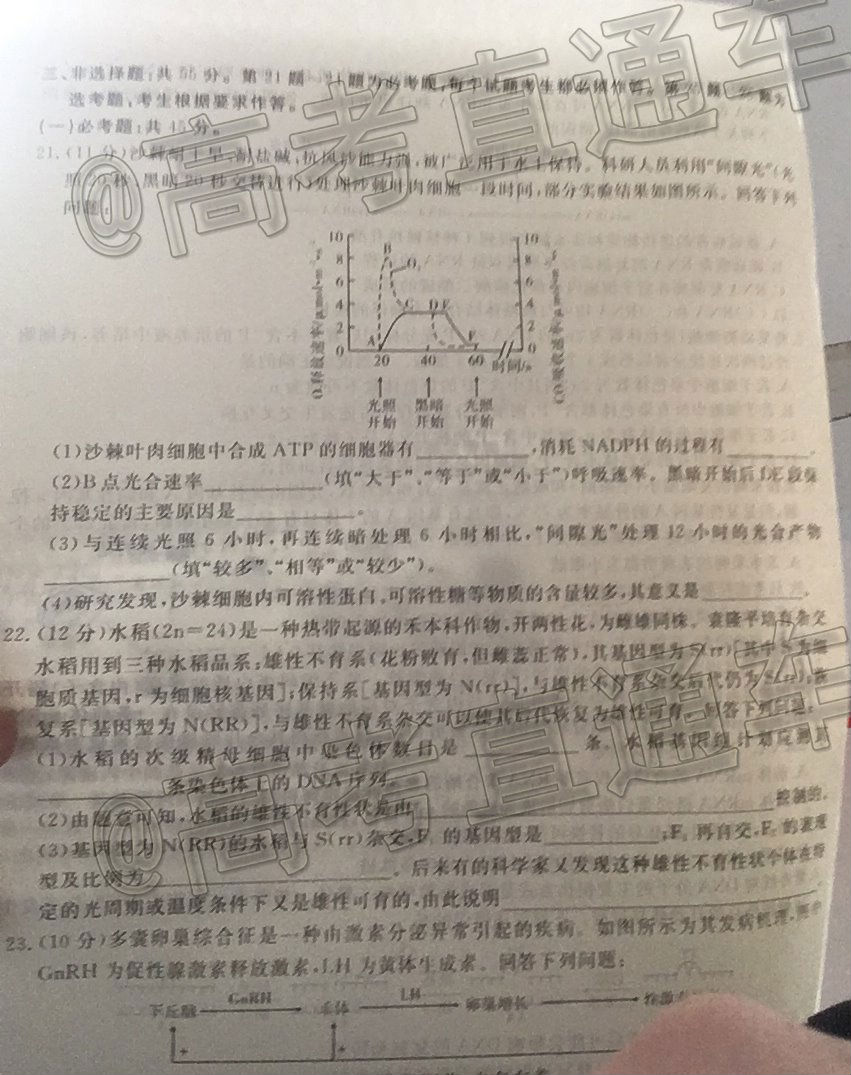 三、非选择题:共55分。第21题 题为必考题,每个试题考生都必须作答。第 题 题为
选考题,考生根据要求作答。
(一)必考题:共45分。
21.(11分)沙棘耐干旱、耐盐碱,抗风沙能力强,被广泛用于水土保持。科研人员利用“间隙光”(光
照20秒、黑暗20秒交替进行)处理沙棘叶肉细胞一段时间,部分实验结果如图所示。回答下列
问题:
10 8 6 4 2 0
10 8 6 4 2 0
A B C D E F
20 40 60 时间/s
光照开始 黑暗开始 光照开始
(1)沙棘叶肉细胞中合成ATP的细胞器有 ,消耗NADPH的过程有 。
(2)B点光合速率 (填“大于”、“等于”或“小于”)呼吸速率。黑暗开始后DE段保
持稳定的主要原因是 。
(3)与连续光照6小时,再连续暗处理6小时相比,“间隙光”处理12小时的光合产物
(填“较多”、“相等”或“较少”)。
(4)研究发现,沙棘细胞内可溶性蛋白、可溶性糖等物质的含量较多,其意义是 。
22.(12分)水稻(2n=24)是一种热带起源的禾本科作物,开两性花,为雌雄同株。袁隆平培育杂交
水稻用到三种水稻品系:雄性不育系(花粉败育,但雌蕊正常),其基因型为S(rr)[其中S为细
胞质基因,r为细胞核基因];保持系[基因型为N(rr)],与雄性不育系杂交后代仍为S(rr);恢
复系[基因型为N(RR)],与雄性不育系杂交可以使其后代恢复为雄性可育。回答下列问题:
(1)水稻的次级精母细胞中染色体数目是 条。水稻基因组计划应测定
条染色体上的DNA序列。
(2)由题意可知,水稻的雄性不育性状是由 控制的。
(3)基因型为N(RR)的水稻与S(rr)杂交,F₁的基因型是 ;F₁再自交,F₂的表现
型及比例为 。后来有的科学家又发现这种雄性不育性状个体在特
定的光周期或温度条件下又是雄性可育的,由此说明 。
23.(10分)多囊卵巢综合征是一种由激素分泌异常引起的疾病。如图所示为其发病机理,图中
GnRH为促性腺激素释放激素,LH为黄体生成素。回答下列问题:
下丘脑 GnRH 垂体 LH 卵巢增长
+ +